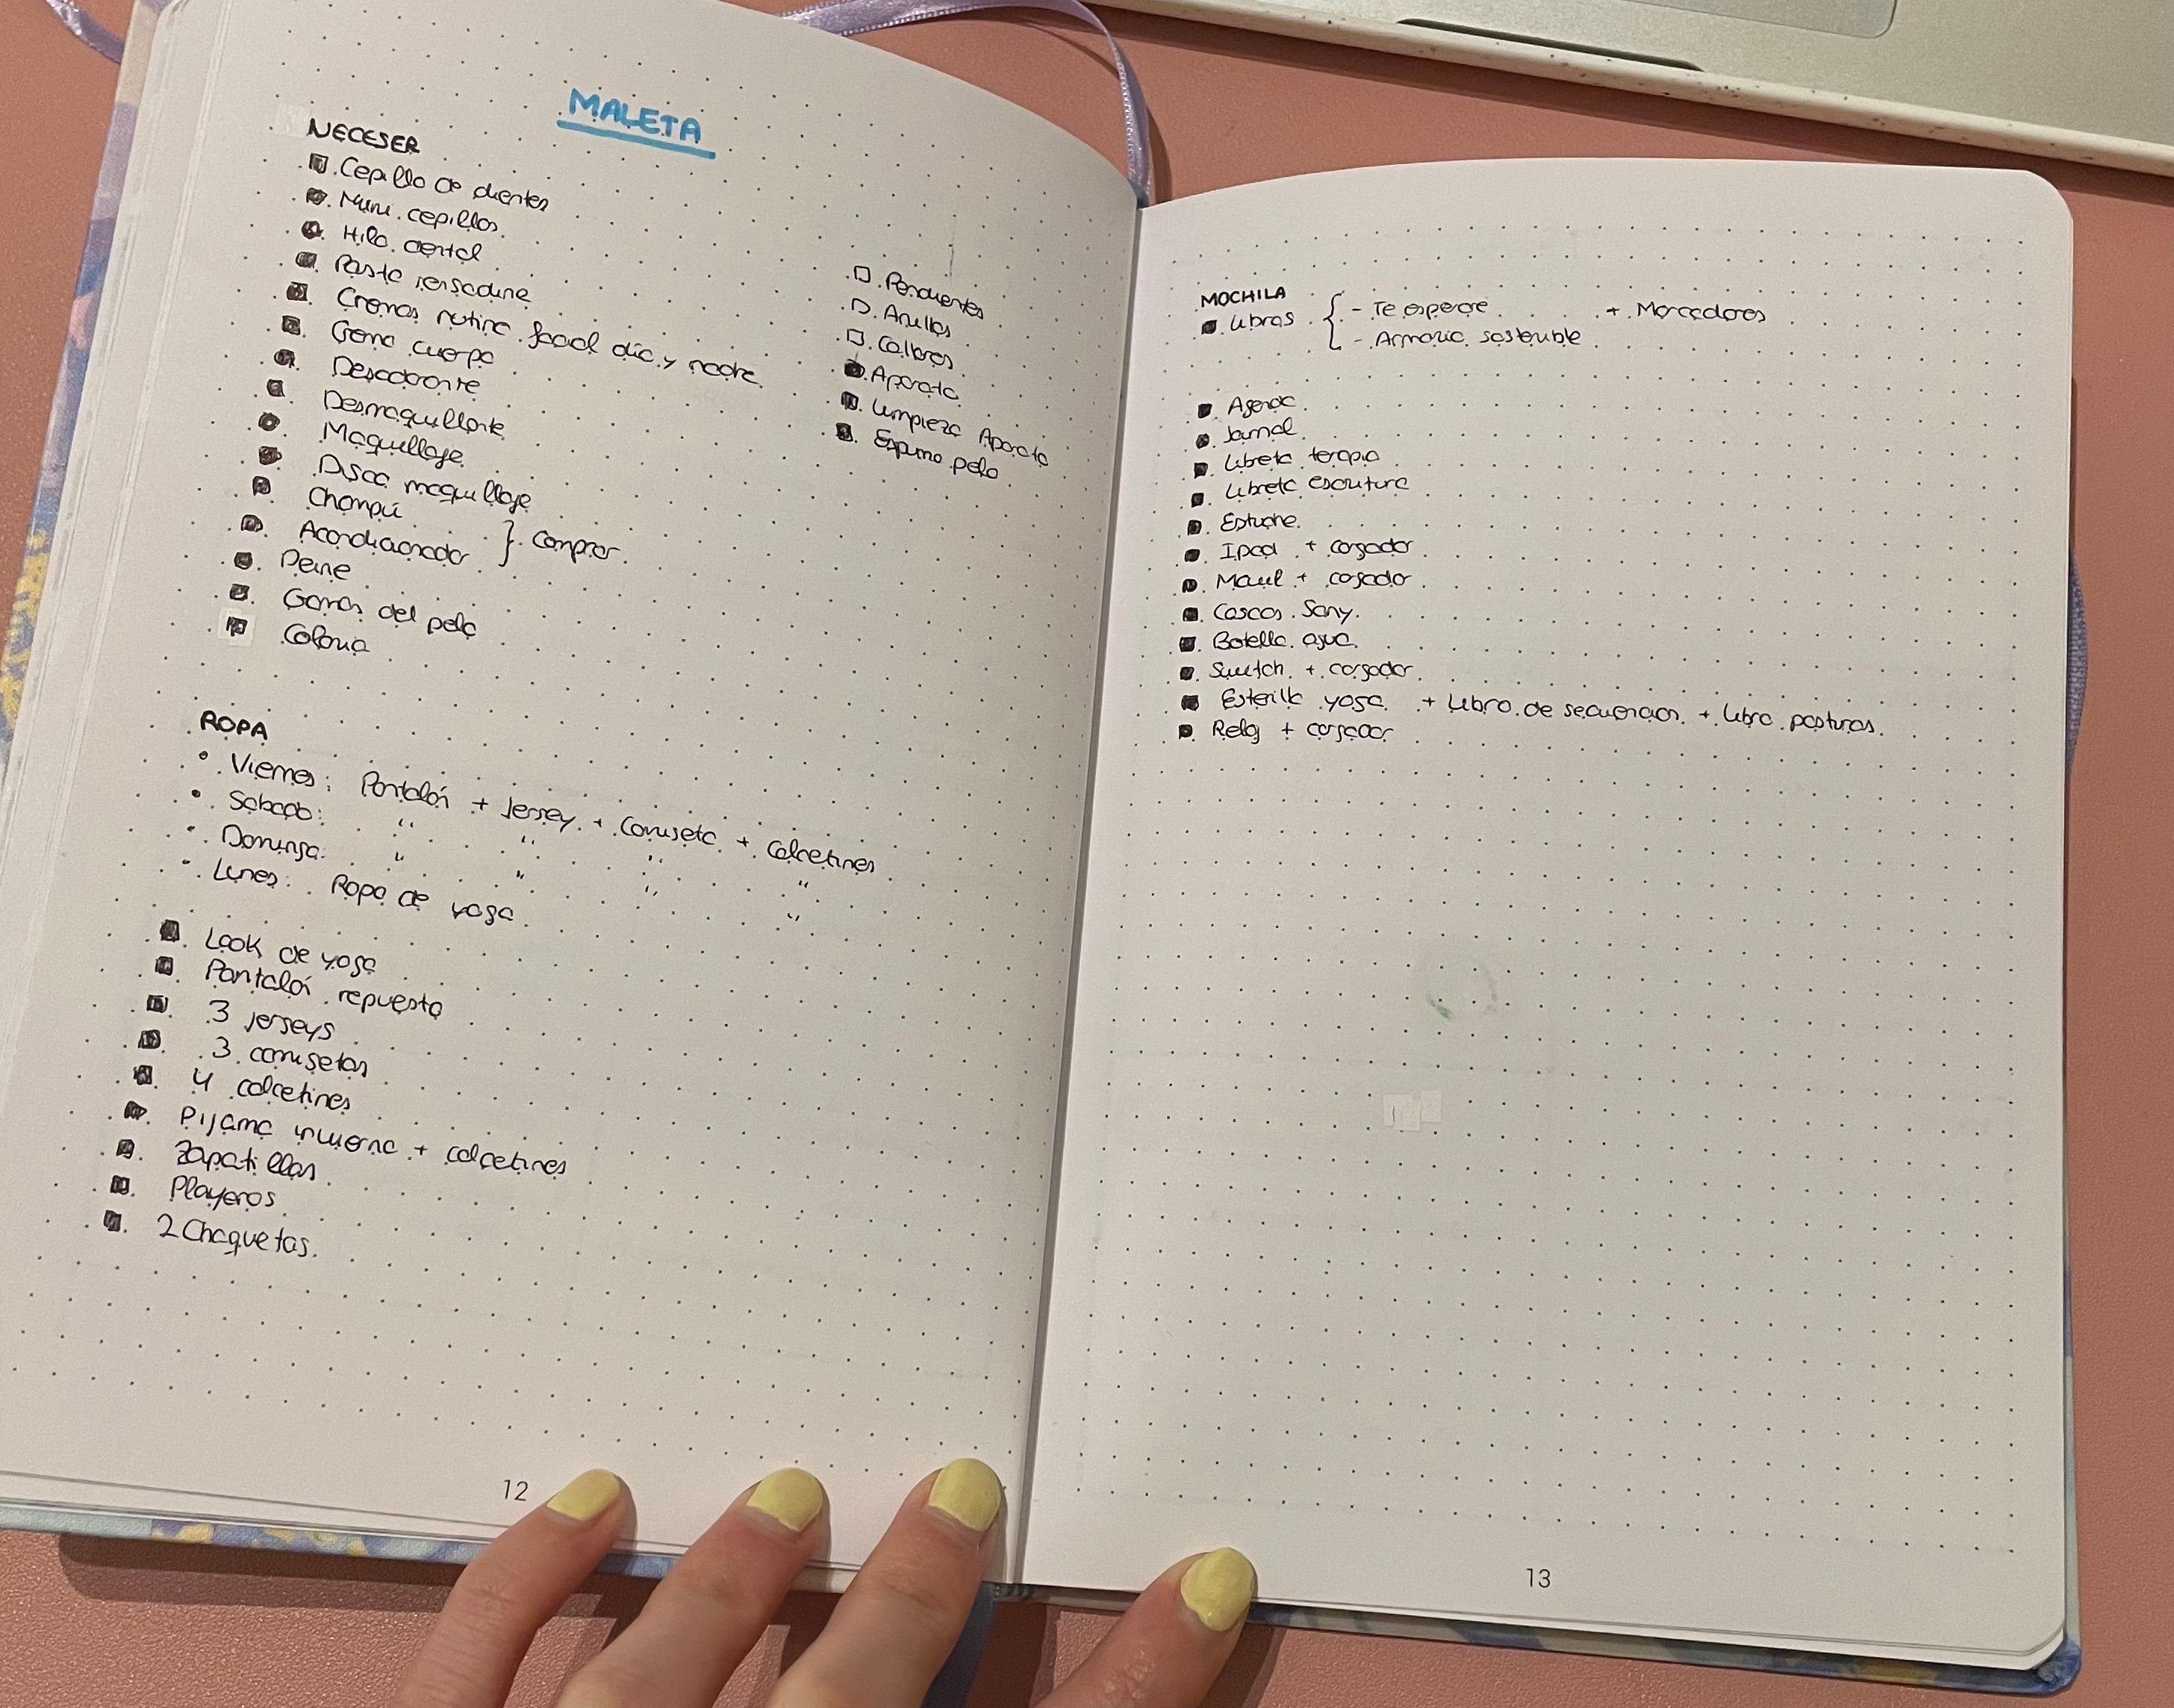 MALETA
NECESER
Cepillo de dientes
Mini cepillos
Hilo dental
Pasta sensodine
Cremas rutina facial día y noche
Crema cuerpo
Desodorante
Desmaquillante
Maquillaje
Disco maquillaje
Champú
Acondicionador } Comprar
Peine
Gomas del pelo
Colonia
Pendientes
Anillos
Collares
Aparato
Limpieza Aparato
Espuma pelo
ROPA
Viernes: Pantalón + Jersey + Camiseta + Calcetines
Sábado: " " " "
Domingo: " " " "
Lunes: Ropa de yoga
Look de yoga
Pantalón repuesto
3 jerseys
3 camisetas
4 calcetines
Pijama invierno + calcetines
Zapatillas
Playeros
2 Chaquetas
12
MOCHILA
Libros { - Te esperaré + Marcadores
- Armario sostenible
Agenda
Journal
Libreta terapia
Libreta escritura
Estuche
Ipad + cargador
Movil + cargador
Cascos Sony
Botella agua
Switch + cargador
Esterilla yoga + Libro de secuencias + libro posturas
Reloj + cargador
13